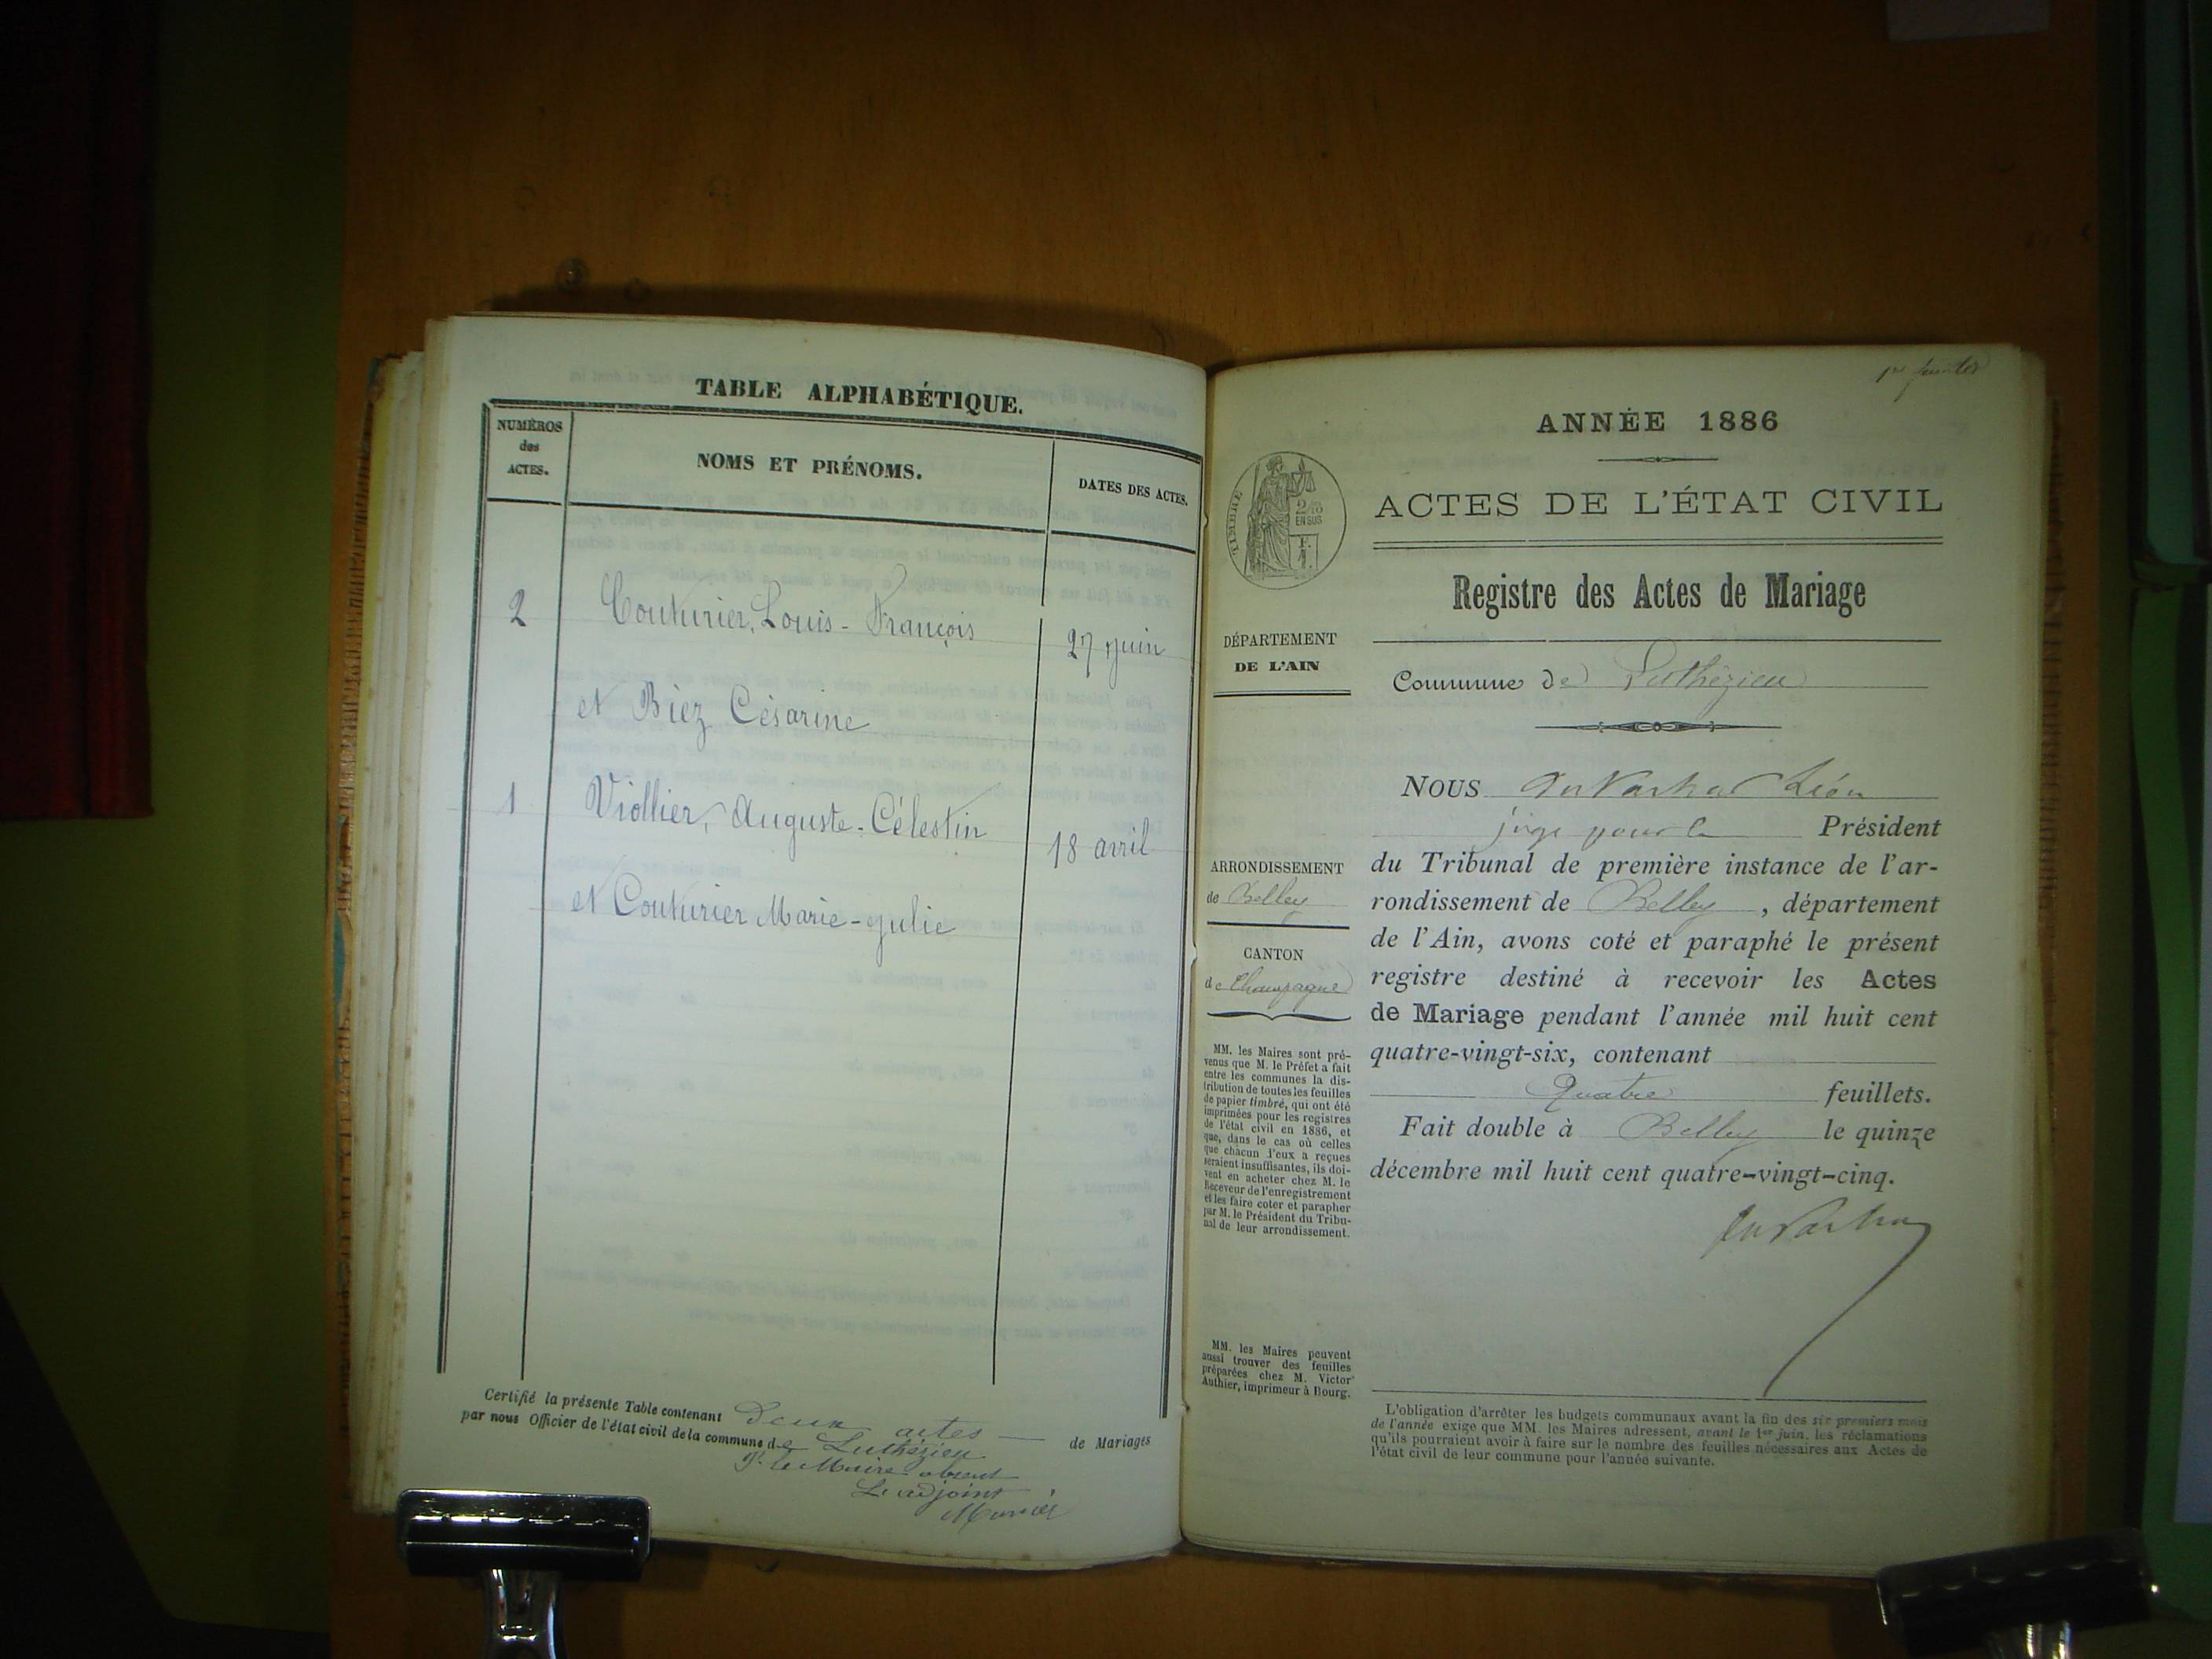 TABLE ALPHABÉTIQUE.
NUMÉROS
des
ACTES.
NOMS ET PRÉNOMS.
DATES DES ACTES.
2
Couturier, Louis-François
27 juin
et Biez Césarine
1
Viollier, Auguste-Célestin
18 avril
et Couturier Marie-Julie
Certifié la présente Table contenant deux actes de Mariages
par nous Officier de l'état civil de la commune de Luthézieu
Pr le Maire absent
L'adjoint
1er feuillet
ANNÉE 1886
ACTES DE L'ÉTAT CIVIL
TIMBRE
2/10
EN SUS
F.
1.
Registre des Actes de Mariage
DÉPARTEMENT
DE L'AIN
Commune de Luthézieu
NOUS Léon
juge pour le Président
du Tribunal de première instance de l'ar-
rondissement de Belley, département
de l'Ain, avons coté et paraphé le présent
registre destiné à recevoir les Actes
de Mariage pendant l'année mil huit cent
quatre-vingt-six, contenant
Quatre feuillets.
Fait double à Belley le quinze
décembre mil huit cent quatre-vingt-cinq.
ARRONDISSEMENT
de Belley
CANTON
de Champagne
MM. les Maires sont pré-
venus que M. le Préfet a fait
entre les communes la dis-
tribution de toutes les feuilles
de papier timbré, qui ont été
imprimées pour les registres
de l'état civil en 1886, et
que, dans le cas où celles
que chacun d'eux a reçues
seraient insuffisantes, ils doi-
vent en acheter chez M. le
Receveur de l'enregistrement
et les faire coter et parapher
par M. le Président du Tribu-
nal de leur arrondissement.
MM. les Maires peuvent
aussi trouver des feuilles
préparées chez M. Victor
Authier, imprimeur à Bourg.
L'obligation d'arrêter les budgets communaux avant la fin des six premiers mois
de l'année exige que MM. les Maires adressent, avant le 1er juin, les réclamations
qu'ils pourraient avoir à faire sur le nombre des feuilles nécessaires aux Actes de
l'état civil de leur commune pour l'année suivante.